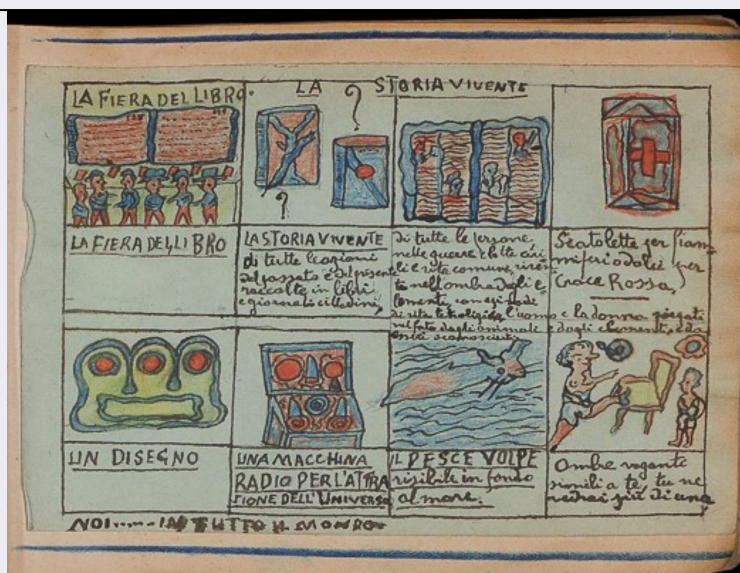 LA FIERA DEL LIBRO.
LA STORIA VIVENTE
?
?
LA FIERA DEL LIBRO
LA STORIA VIVENTE
di tutte le azioni
del passato e del presente
raccolte in libri
e giornali cittadini,
di tutte le persone,
nelle guerre e lotte civi
li e vita comune, viven
ti nell'ombra degli e
lementi, con episodi
di vita l'uomo e la donna piegati
nel fato dagli animali e dagli elementi, e da
esseri sconosciuti
Scatolette per fiam
miferi o dolci per
Croce Rossa,
UN DISEGNO
UNA MACCHINA
RADIO PER L'ATTRA
SIONE DELL'UNIVERSO
IL PESCE VOLPE
visibile in fondo
al mare.
Ombre vaganti
simili a te, tu ne
vedrai più di una
NOI..... IN TUTTO IL MONDO